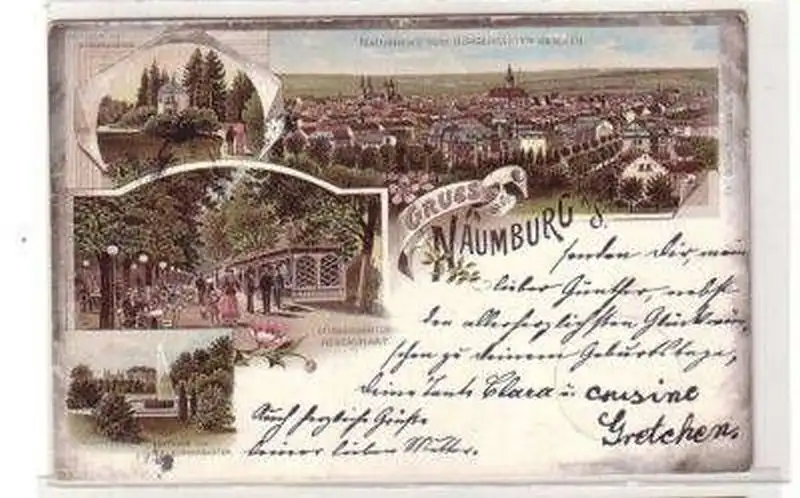 NAUMBURG VOM BÜRGERGARTEN GESEHEN
GRUSS
A.
NAUMBURG a/S.
senden Dir, mein
lieber Günther, nebst
den allerherzlichsten Glückwün-
schen zu deinem Geburtstage,
Deine Tante Clara u. cousine
Gretchen.
RESTAURANT.
Auch herzliche Grüße
deiner lieben Mutter.